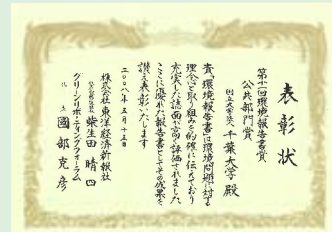 表彰状
第十一回環境報告書賞
公共部門賞
国立大学法人 千葉大学 殿
貴環境報告書は環境問題に対する
理念と取り組みを的確に伝えており
充実した誌面が高く評価されました
ここに優れた報告書としてその成果を
讃え表彰いたします
二〇〇八年五月十五日
株式会社東洋経済新報社
柴生田 晴四
グリーンリポーティングフォーラム
國部克彦